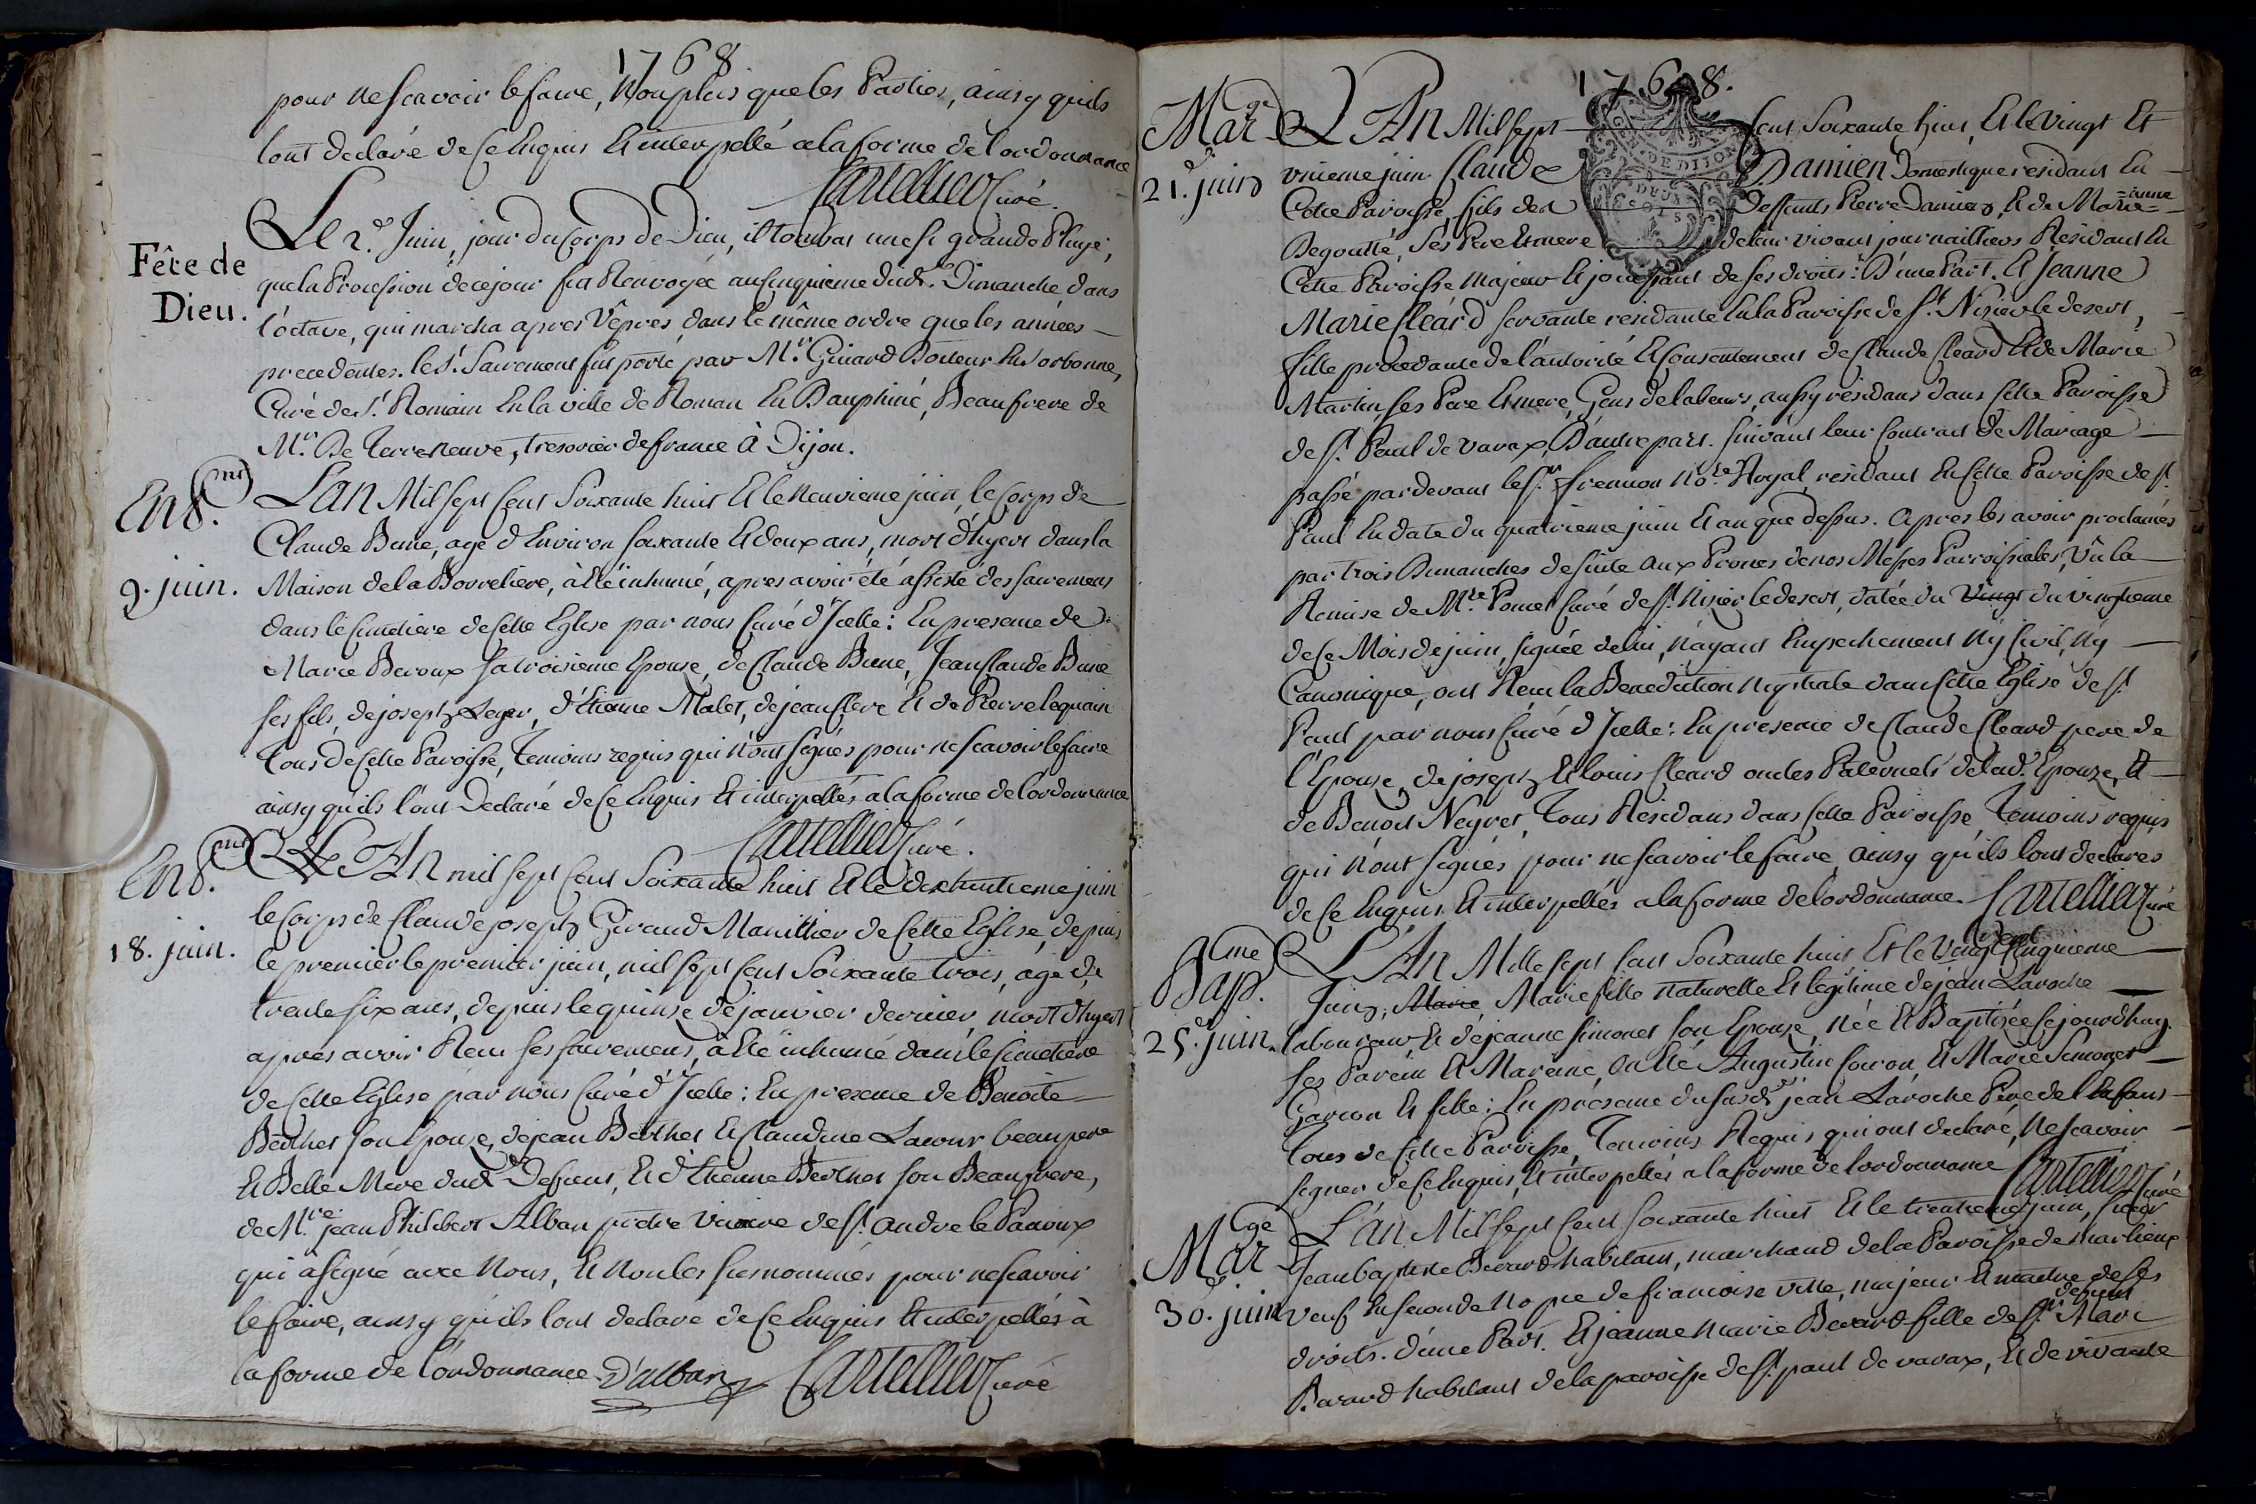 1768
pour ne scavoir le faire, Non plus que les Parties, ainsy quils
lont declaré de ce Enquis Et interpellé a la forme de lordonnance
Cartellier Curé.
Fête de Dieu.
Le 2.e Juin, jour du Corps de Dieu, il tombat une si grande Pluye,
que la Procession de ce jour fut Renvoyée au cinquieme dud.t Dimanche dans
l'octave, qui marcha apres Vêpres dans le même ordre que les années
precedentes. le S.t Sacrement fut porté par M.r Guiard Docteur En Sorbonne,
Curé de S.t Romain En la ville de Roman En Dauphiné, Beaufrere de
M.r De Terreneuve, tresorier de france à Dijon.
Ent.mt
9. juin.
L'an Mil sept Cent Soixante huit Et le Neuvieme juin, le Corps de
Claude Bune, agé d'Environ soixante Et deux ans, mort d'hyert dans la
Maison de la Bovreliere, à Eté inhumé, apres avoir été assisté des sacremens
dans le cimetiere de Cette Eglise par nous Curé d'Icelle: En presence de
Marie Beroux sa troisieme Epouse, de Claude Bune, Jean Claude Bune
ses fils, de joseph Leger, d'Etienne Malet, de jean Clerc Et de Pierre Lequain
Tous de Cette Paroisse, Temoins requis qui n'ont signés pour ne scavoir le faire
ainsy qu'ils l'ont Declaré de Ce Enquis Et interpellés a la forme de l'ordonnance
Cartellier Curé.
Ent.mt
18. juin.
L'An mil sept Cent Soixante huit Et le dixhuitieme juin
le Corps de Claude joseph Giraud Manillier de Cette Eglise, depuis
le premier le premier juin, mil sept Cent Soixante trois, agé de
trente six ans, depuis le quinse de janvier dernier, mort d'hyert
apres avoir Recu ses sacremens, à Eté inhumé dans le Cimetiere
de Cette Eglise par nous Curé d'Icelle: En presence de Benoite
Berthet son Epouze, de jean Berthet Et Claudine Lacour beaupere
Et Belle Mere dud.t Defunt, Et d'Etienne Berthet son Beaufrere,
de M.re jean Philibert Alban pretre Vicaire de S.t andre le Panoux
qui à signé avec Nous, Et Non les susnommés pour ne scavoir
le faire, ainsy qu'ils lont declaré de Ce Enquis Et interpellés à
la forme de l'ordonnance. D'alban Cartellier Curé
1768.
Mar.ge
21.e juin
L'An Mil sept Cent Soixante huit, Et le Vingt Et
unieme juin Claude Damien Domestique residant En
Cette Paroisse, fils de Deffunts Pierre Damien, Et de Marie=anne
Degoutté, ses Pere Et mere de leur vivant journailliers Residant En
Cette Paroisse Majeur Et jouissant de ses droits: D'une Part. Et Jeanne
Marie Cleard servante residante En la Paroisse de S.t Nizier le desert,
fille procedante de l'autorité Et Consentement de Claude Cleard Et de Marie
Martin ses Pere Et mere, Gens de labeurs, aussy résidans dans Cette Paroisse
de S.t Paul de varax, D'autre part. suivant leur Contract de Mariage
passé pardevant le S.r Fremion No.re Royal, residant En Cette Paroisse de S.t
Paul En date du quatrieme juin Et an que dessus. Apres les avoir proclamés
par trois Dimanches de suite aux Prones de nos Messes Parroissiales, Vû la
Remise de M.re Pomet Curé de S.t Nizier le desert, datée du Vingt du vingtieme
de Ce Mois de juin, signée de lui, N'ayant Empechement Ny Civil, Ny
Canonique, ont Recu la Benediction Nuptiale dans Cette Eglise de S.t
Paul par nous Curé d'Icelle: En presence de Claude Cleard pere de
l'Epouse, de joseph Et louis Cleard oncles Paternels de lad.e Epouze, Et
de Benoit Neyret, Tous Residans dans Cette Paroisse Temoins requis
qui N'ont signés pour ne scavoir le faire, ainsy qu'ils lont declarés
de Ce Enquis Et interpellés a la forme de lordonnance. Cartellier Curé
Bap.me
25.e juin.
L'An Mille sept Cent Soixante huit Et le Vingt Cinquieme
Juin, Marie, Marie fille Naturelle Et legitime de jean Laroche
laboureur Et de jeanne simonet son Epouse, Née Et Baptisée Ce jourdhuy.
ses Parein Et Mareine, on Eté Augustin Et Marie Simonet
Garcon Et fille: En présence du susd.t jean Laroche Pere de l'Enfant
Tous de Cette Paroisse, Temoins Requis qui ont declaré, Ne scavoir
signer de Ce Enquis, Et interpellés a la forme de lordonnance Cartellier Curé
Mar.ge
30.e juin
L'an Mil sept Cent soixante huit Et le trentieme juin, sieur
Jean baptiste Berard habitant, marchand de la Paroisse de Marlieux
Veuf En seconde Noces de francoise ville, majeur Et maitre de ses
droits. d'une Part. Et jeanne Marie Berard fille de defunt S.r Marc
Berard habitant de la paroisse de S.t paul de varax, Et de vivante